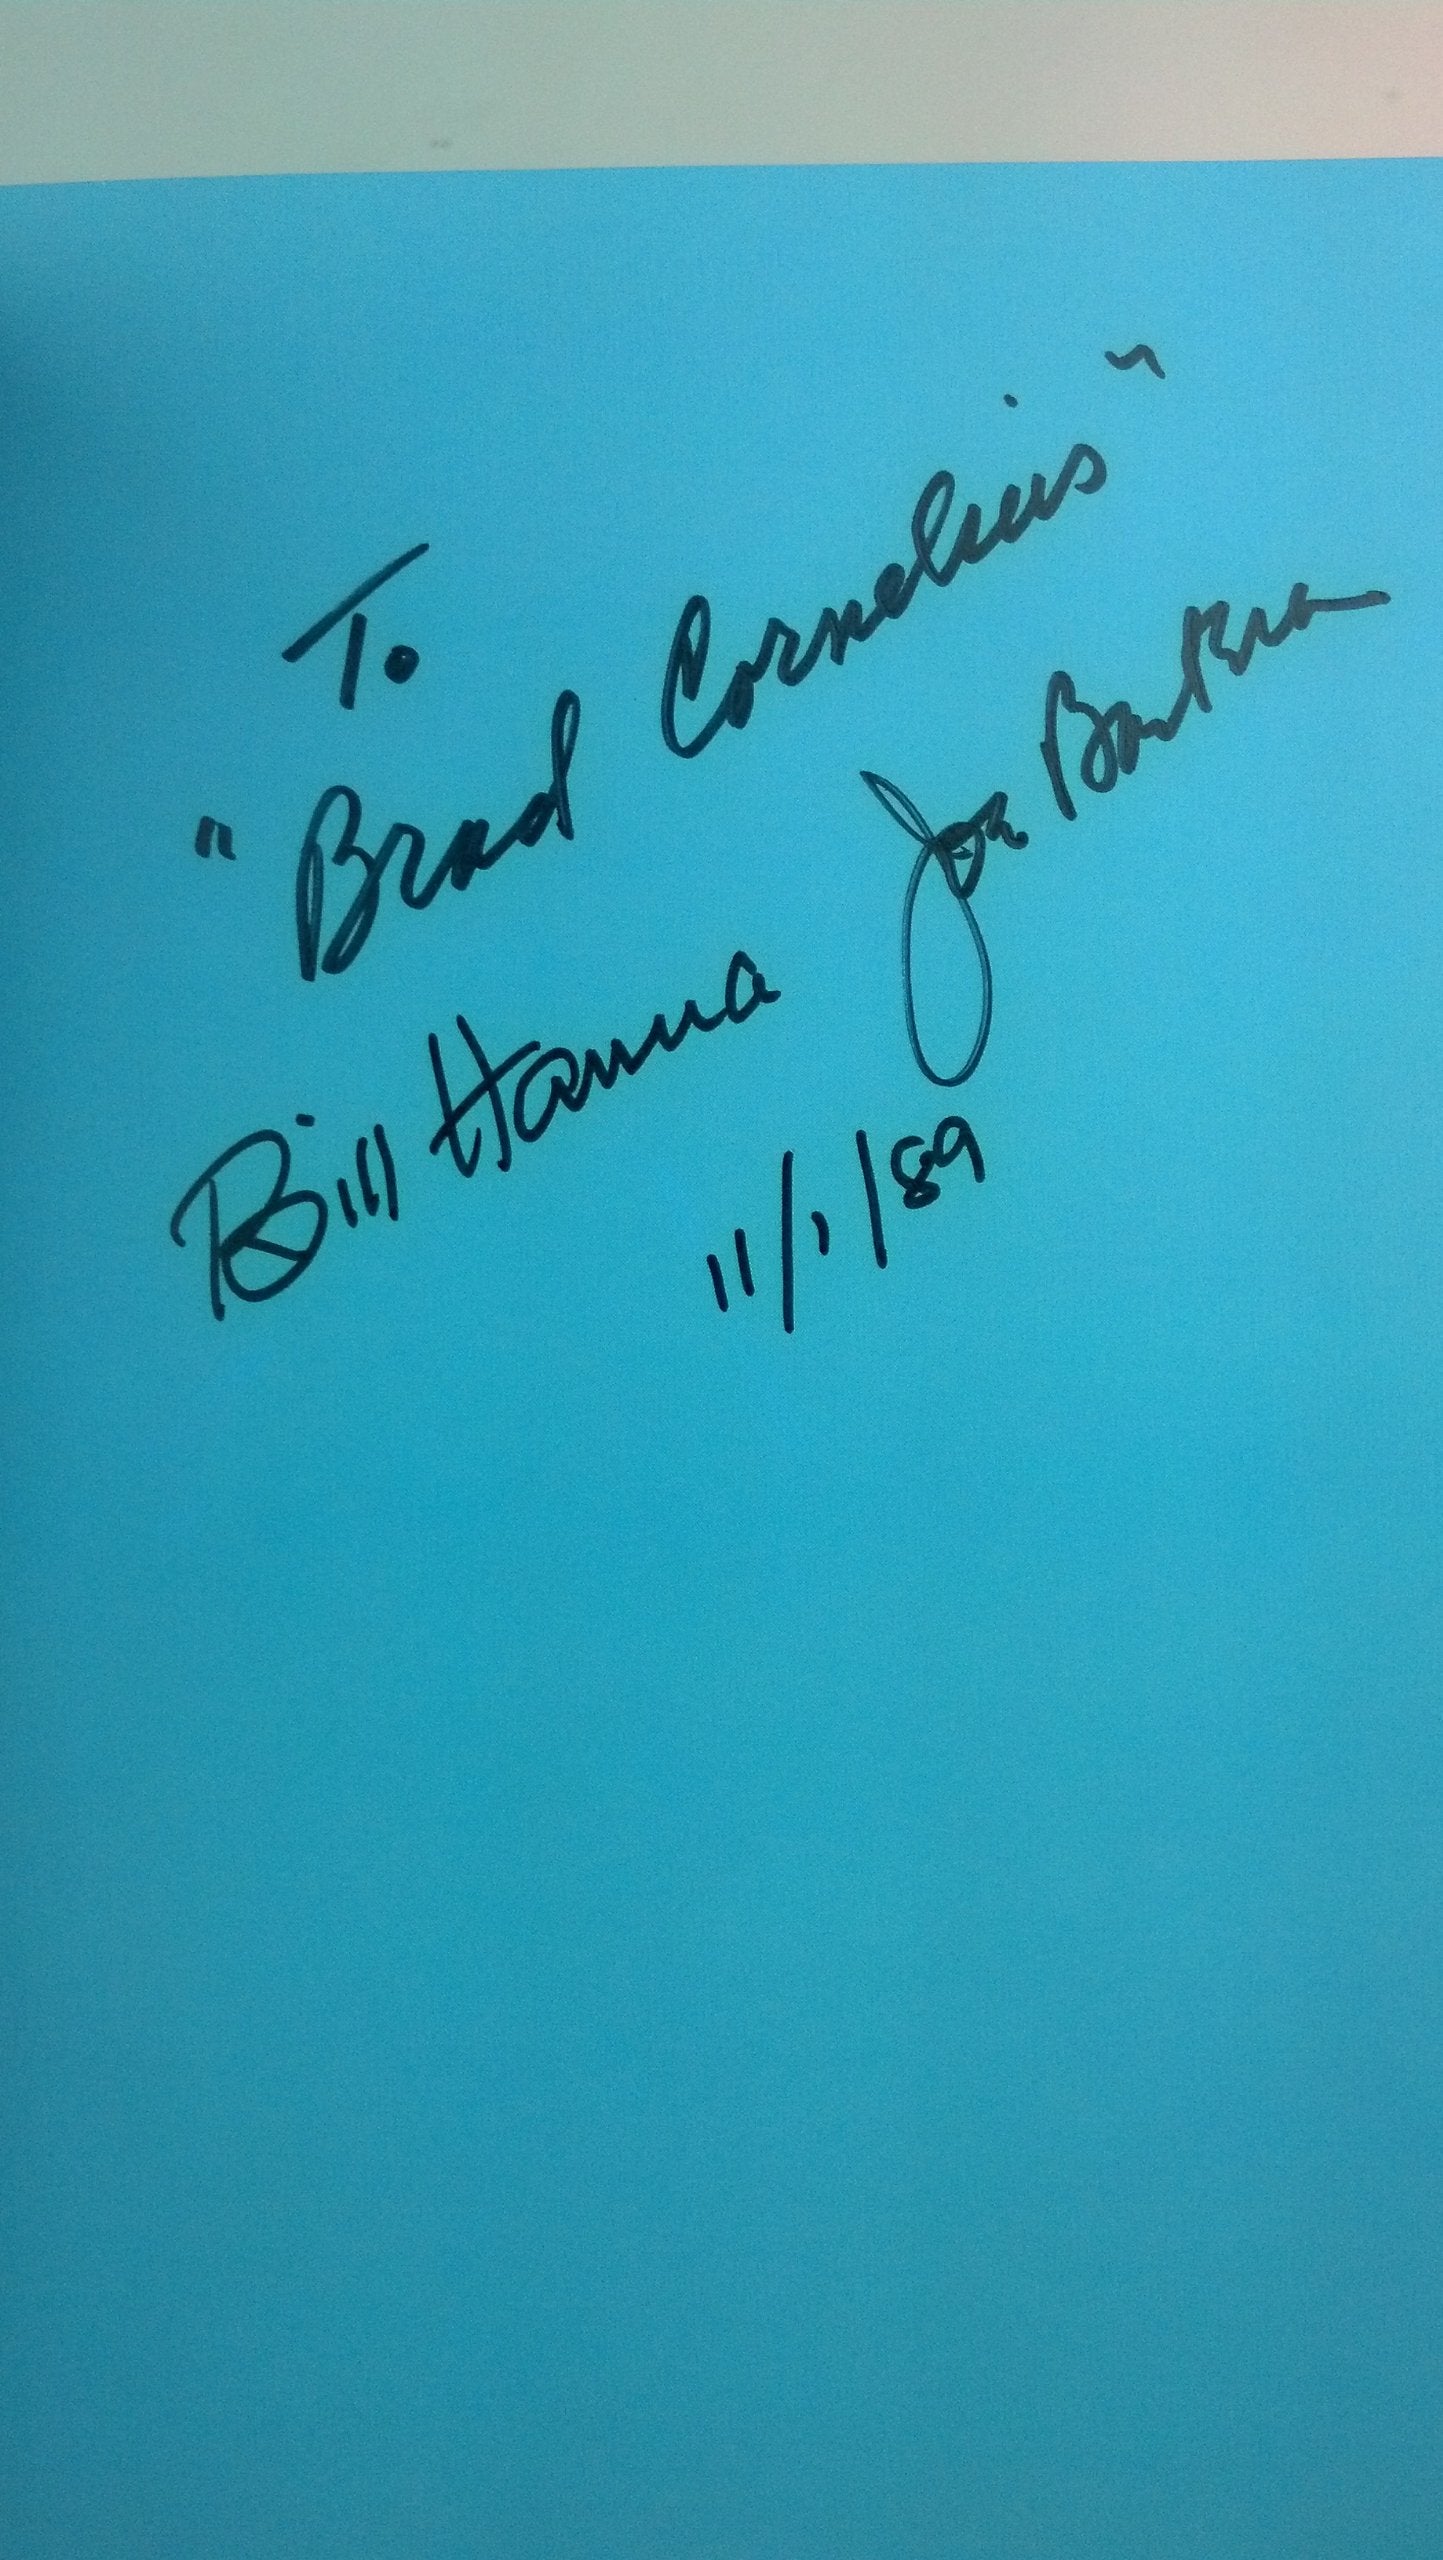 To
"Brad Cornelius"
Bill Hanna Joe Barbera
11/1/89